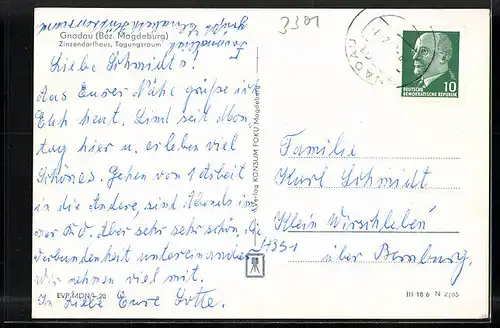 Gnadau (Bez. Magdeburg)
Zinzendorfhaus, Tagungsraum
Liebe Schmidts!
Aus Eurer Nähe grüße ich
Euch heut. Sind seit Mon-
tag hier u. erleben viel
Schönes. Gehen von 1 Arbeit
in die Andere, sind Abends im-
mer k.o. Aber sehr sehr schön. Ge
Verbundenheit untereinander
Wir nehmen viel mit.
In Liebe Eure Lotte.
EVP MDN 0,20
Verlag KONSUM FOKU Magdeburg
3301
GNADAU
10
DEUTSCHE
DEMOKRATISCHE REPUBLIK
Familie
Karl Schmidt
Klein Wirschleben
4351
über Bernburg.
III-18-6 N 2/65